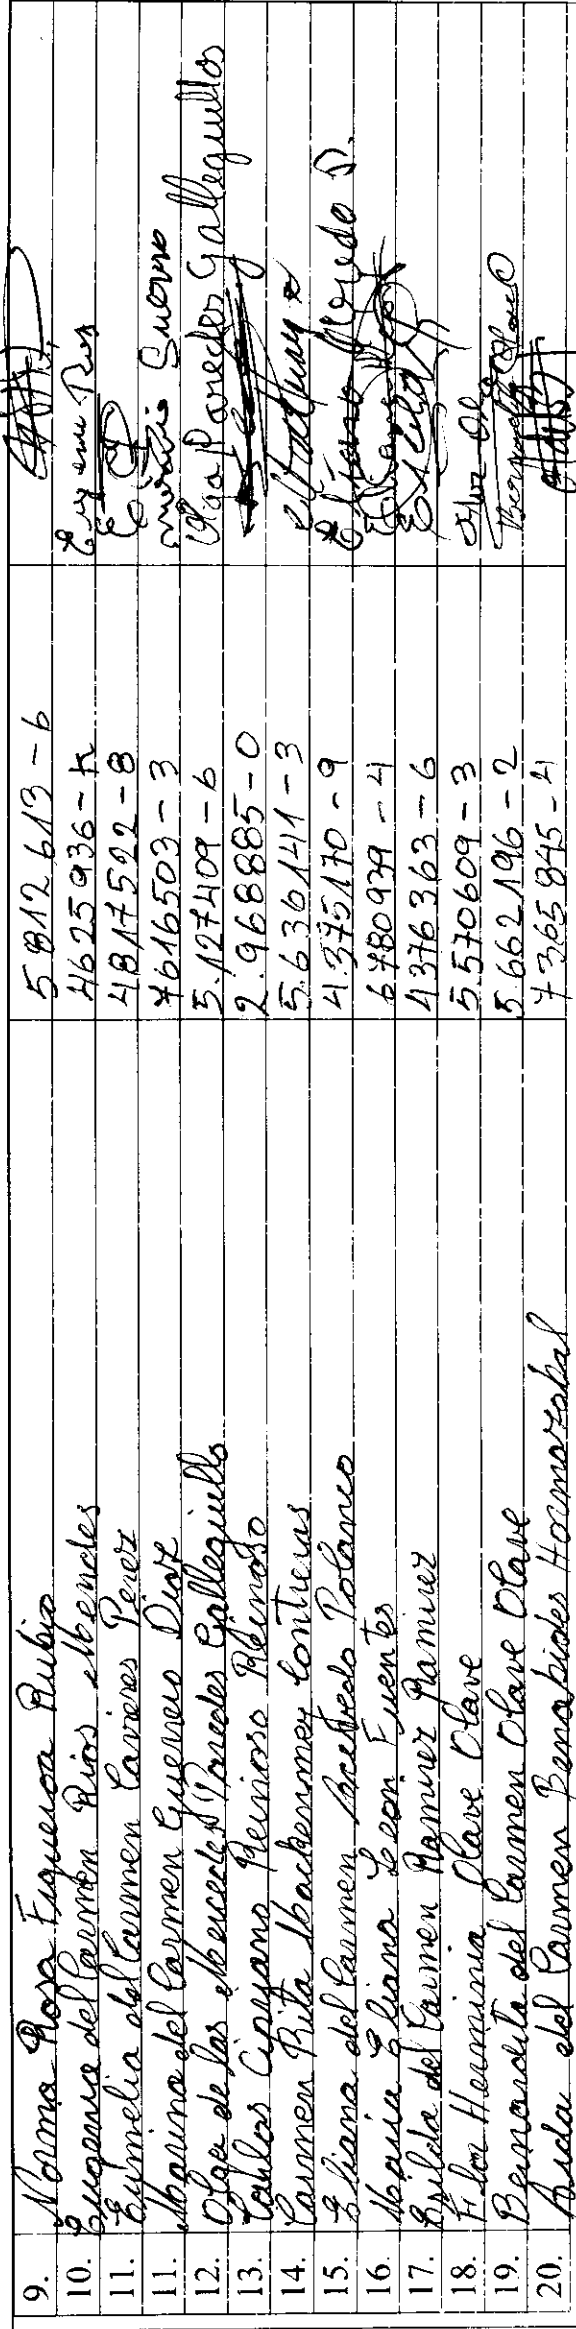 9. Norma Rosa Figueroa Rubio 5812613-6
10. Eugenia del Carmen Rios Mendes 4625936-K Eugenia Rios
11. Eumelia del Carmen Cavieres Perez 4817522-8
11. Marina del Carmen Guerrero Diaz 7616503-3
12. Olga de las Mercedes Paredes Galleguillo 5.127409-6 Olga Paredes Galleguillos
13. Carlos Cipriano Reinoso Reinoso 2.968885-0
14. Carmen Rita Mackenney Contreras 5.636141-3
15. Eliana del Carmen Acebedo Polanco 4.375170-9
16. Maria Eliana Leon Fuentes 6780939-4
17. Erilda del Carmen Ramirez Ramirez 4376363-6
18. Flor Herminia Olave Olave 5.570609-3
19. Bernardita del Carmen Olave Olave 5.662196-2
20. Aida del Carmen Benabides Hormazabal 7365845-4